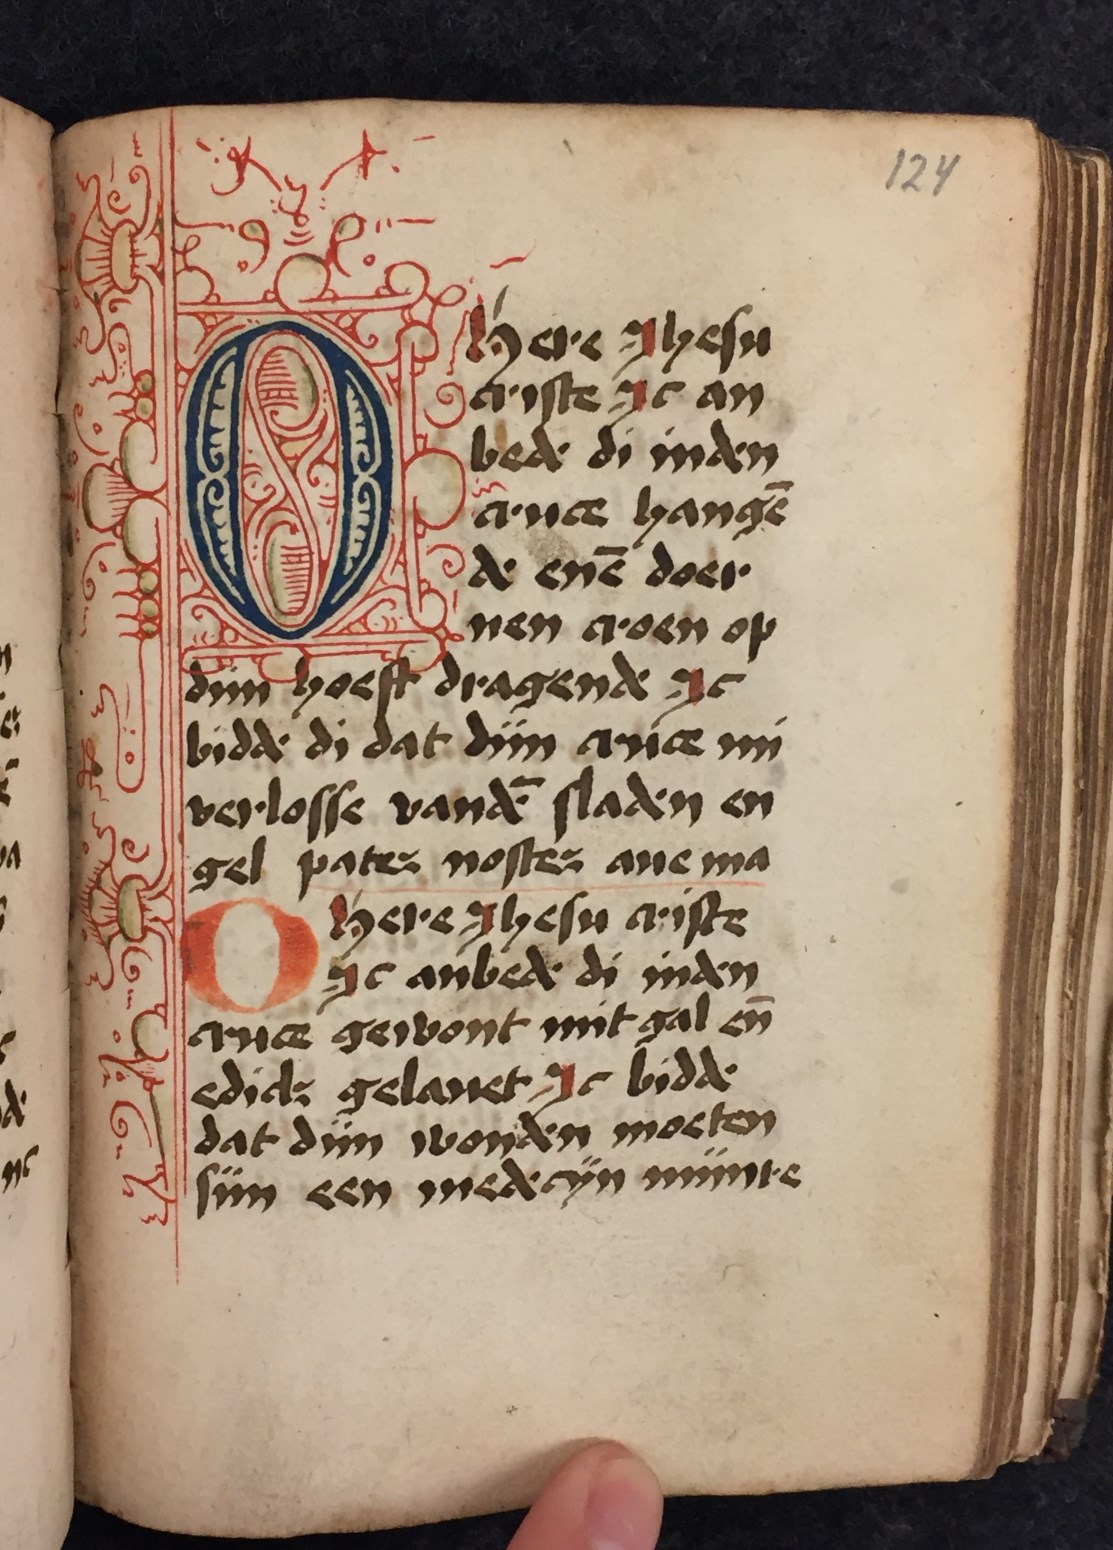 124
O here Jhesu
criste Jc an
bede di inden
cruce hangē
de enē doer
nen croen op
diin hoeft dragende Jc
bidde di dat diin cruce mi
verlosse vandē sladen en
gel pater noster aue ma
O here Jhesu criste
Jc anbede di inden
cruce gewont mit gal eñ
edick gelauet Jc bidde
dat diin wonden moeten
siin een medecijn miinre